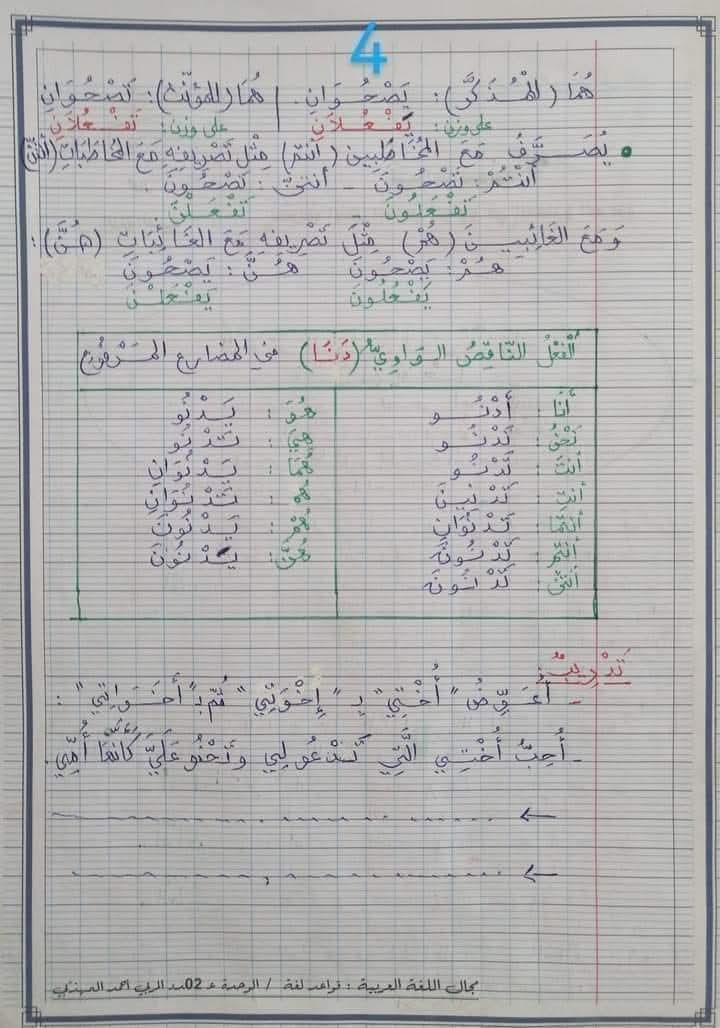 4
هُمَا (المُذَكَّر): يَصْحُوَانِ. / هُمَا (للمُؤنّث): تَصْحُوَانِ
على وزن: يَفْعُلَانِ على وزن: تَفْعُلَانِ
• يُصَرَّفُ مَعَ المُخَاطَبِين (أنتم) مِثْل تَصْرِيفِهِ مَعَ المُخَاطَبَاتِ (أَنْتُنَّ)
أَنْتُمْ: تَصْحُونَ - أنتنّ: تَصْحُونَ.
تَفْعَلُونَ - تَفْعَلْنَ
وَمَعَ الغَائِبِيـنَ (هُمْ) مِثْلَ تَصْرِيفِهِ مَعَ الغَائِبَاتِ (هُنَّ):
هُمْ: يَصْحُونَ هُنَّ: يَصْحُونَ
يَفْعُلُونَ يَفْعَلْنَ
الْفِعْلُ النَّاقِصُ الـوَاوِيُّ (دَنَا) في المضارع المَرْفُوع
أَنَا: أَدْنُـو
نَحْنُ: نَدْنُـو
أنتَ: تَدْنُـو
أنتِ: تَدْنِينَ
أنتُمَا: تَدْنُوَانِ
أنتُم: تَدْنُونَ
أنتنّ: تَدْنُونَ
هُوَ: يَـدْنُو
هِيَ: تَـدْنُو
هُمَا: يَـدْنُوَانِ
هما: تَـدْنُوَانِ
هُمْ: يَـدْنُونَ
هُنَّ: يَـدْنُونَ
تَدْرِيبٌ:
- أُعَـوِّضُ "أُخْتِي" بِـ "إِخْوَتِي" ثُمّ بـ "أَخَـوَاتِي":
- أُحِبُّ أُخْتِـي الَّتِي تَـدْعُو لِي وَتَحْنُو عَلَيَّ كَأَنَّهَا أُمِّي.
← ..........
← ..........
مجال اللغة العربية: قواعد لغة / الوحدة 02